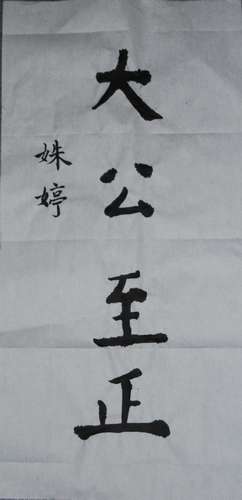 大公至正
姝婷